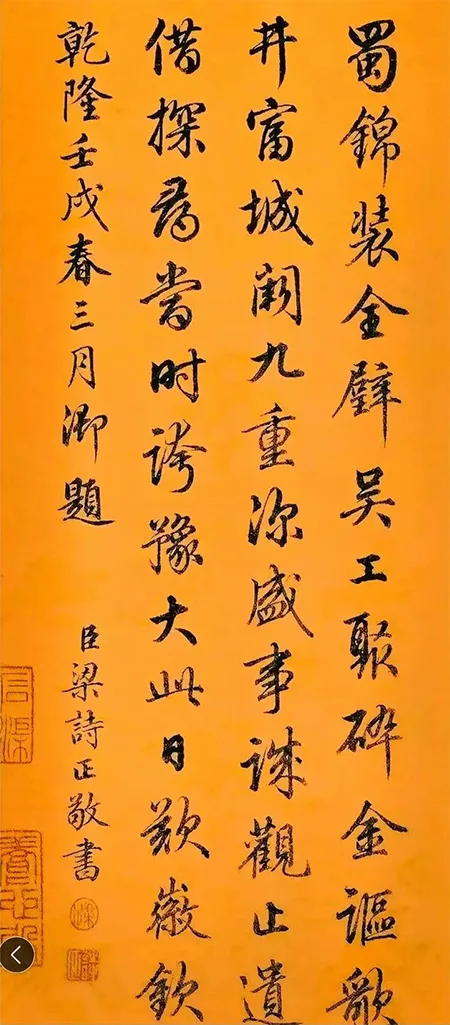 蜀錦装全璧吴工聚碎金謳歌
井富城闕九重深盛事誠觀止遺
借探尋當时誇豫大此日歎徽欽
乾隆壬戌春三月御題
臣梁詩正敬書